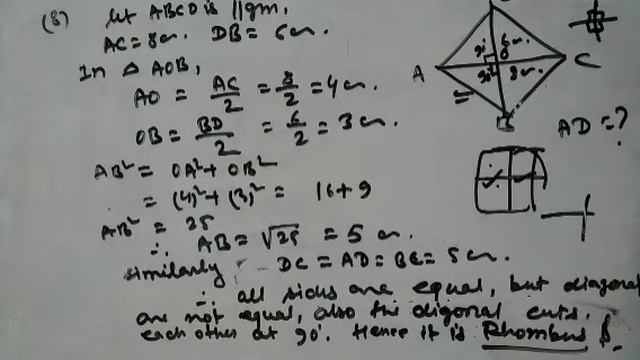 (8) let ABCD is ||gm.
AC = 8 cm. DB = 6 cm.
In △ AOB,
AO = AC/2 = 8/2 = 4 cm.
OB = BD/2 = 6/2 = 3 cm.
AB² = OA² + OB²
= (4)² + (3)² = 16 + 9
AB² = 25
∴ AB = √25 = 5 cm.
similarly DC = AD = BC = 5 cm.
∴ all sides are equal, but diagonal
are not equal, also the digonal cuts.
each other at 90°. Hence it is Rhombus
A
C
B
8 cm.
AD = ?